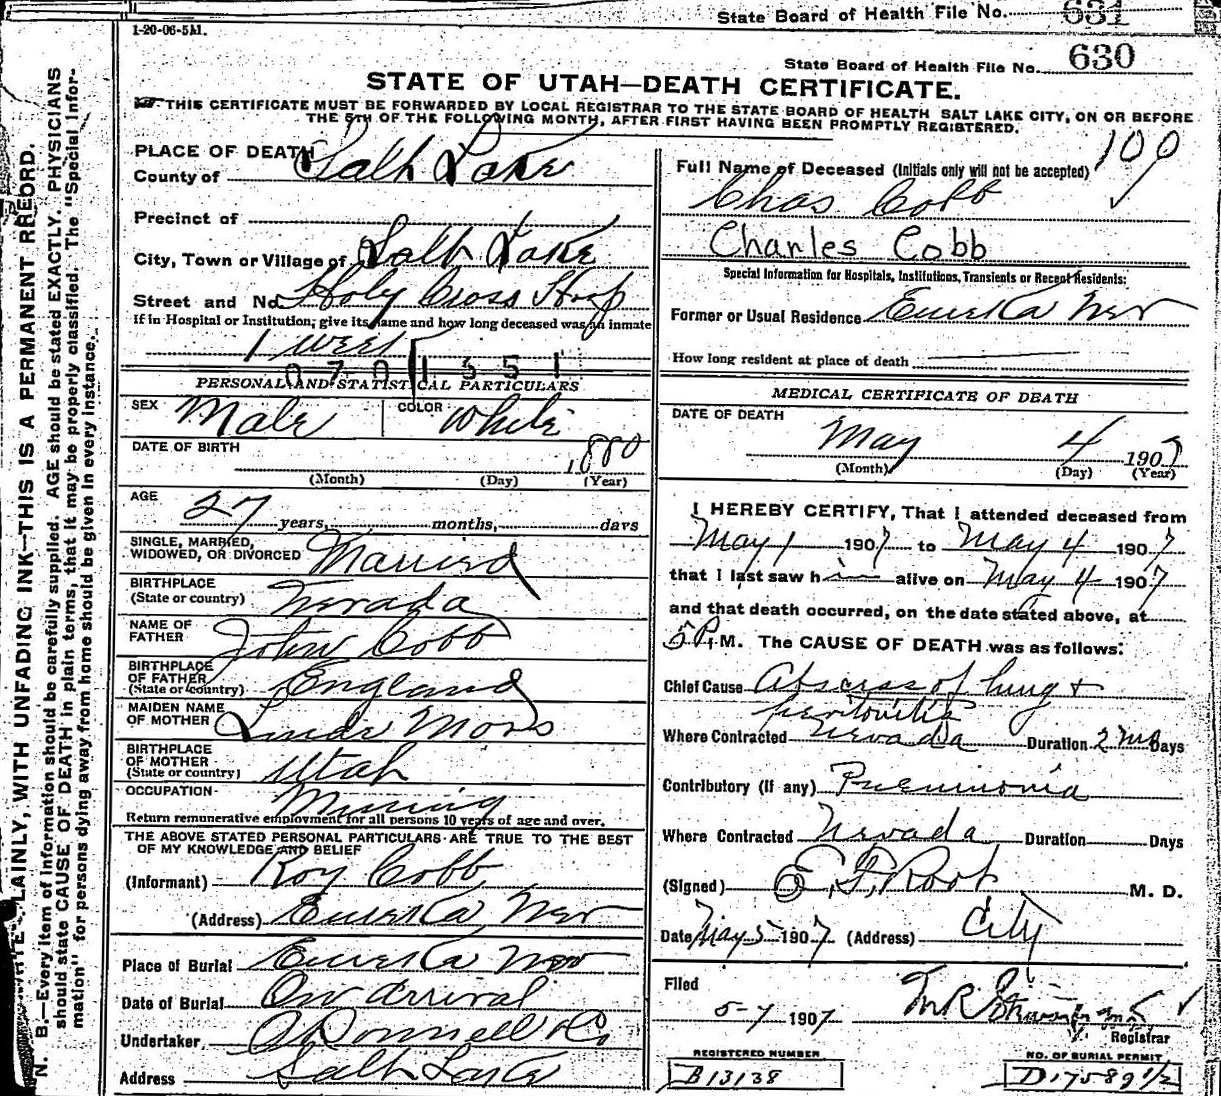 State Board of Health File No. 631
1-20-06-5M.
State Board of Health File No. 630
STATE OF UTAH—DEATH CERTIFICATE.
THIS CERTIFICATE MUST BE FORWARDED BY LOCAL REGISTRAR TO THE STATE BOARD OF HEALTH SALT LAKE CITY, ON OR BEFORE
THE 5TH OF THE FOLLOWING MONTH, AFTER FIRST HAVING BEEN PROMPTLY REGISTERED.
PLAINLY, WITH UNFADING INK—THIS IS A PERMANENT RECORD.
N. B.—Every item of information should be carefully supplied. AGE should be stated EXACTLY. PHYSICIANS
should state CAUSE OF DEATH in plain terms, that it may be properly classified. The "Special Infor-
mation" for persons dying away from home should be given in every instance.
PLACE OF DEATH
County of Salt Lake
Precinct of
City, Town or Village of Salt Lake
Street and No. Holy Cross Hosp
If in Hospital or Institution; give its name and how long deceased was an inmate
1 week
0701351
PERSONAL AND STATISTICAL PARTICULARS
SEX Male COLOR White
DATE OF BIRTH 1880
(Month) (Day) (Year)
AGE
27 years, months, days
SINGLE, MARRIED,
WIDOWED, OR DIVORCED Married
BIRTHPLACE
(State or country) Nevada
NAME OF
FATHER John Cobb
BIRTHPLACE
OF FATHER
(State or country) England
MAIDEN NAME
OF MOTHER
BIRTHPLACE
OF MOTHER
(State or country) Utah
OCCUPATION Mining
Return remunerative employment for all persons 10 years of age and over.
THE ABOVE STATED PERSONAL PARTICULARS ARE TRUE TO THE BEST
OF MY KNOWLEDGE AND BELIEF
(Informant) Roy Cobb
(Address) Eureka Nev
Place of Burial Eureka Nev
Date of Burial On arrival
Undertaker O'Donnell & Co
Address Salt Lake
109
Full Name of Deceased (Initials only will not be accepted)
Chas Cobb
Charles Cobb
Special Information for Hospitals, Institutions, Transients or Recent Residents:
Former or Usual Residence Eureka Nev
How long resident at place of death
MEDICAL CERTIFICATE OF DEATH
DATE OF DEATH
May 4 1907
(Month) (Day) (Year)
I HEREBY CERTIFY, That I attended deceased from
May 1 1907 to May 4 1907
that I last saw him alive on May 4 1907
and that death occurred, on the date stated above, at
5 P. M. The CAUSE OF DEATH was as follows:
Chief Cause Abscess of lung +
peritonitis
Where Contracted Nevada Duration 2 ms Days
Contributory (If any) Pneumonia
Where Contracted Nevada Duration Days
(Signed) E. F. Root M. D.
Date May 5 1907 (Address) City
Filed
5-7 1907
Registrar
REGISTERED NUMBER
B13138
NO. OF BURIAL PERMIT
D17589 1/2